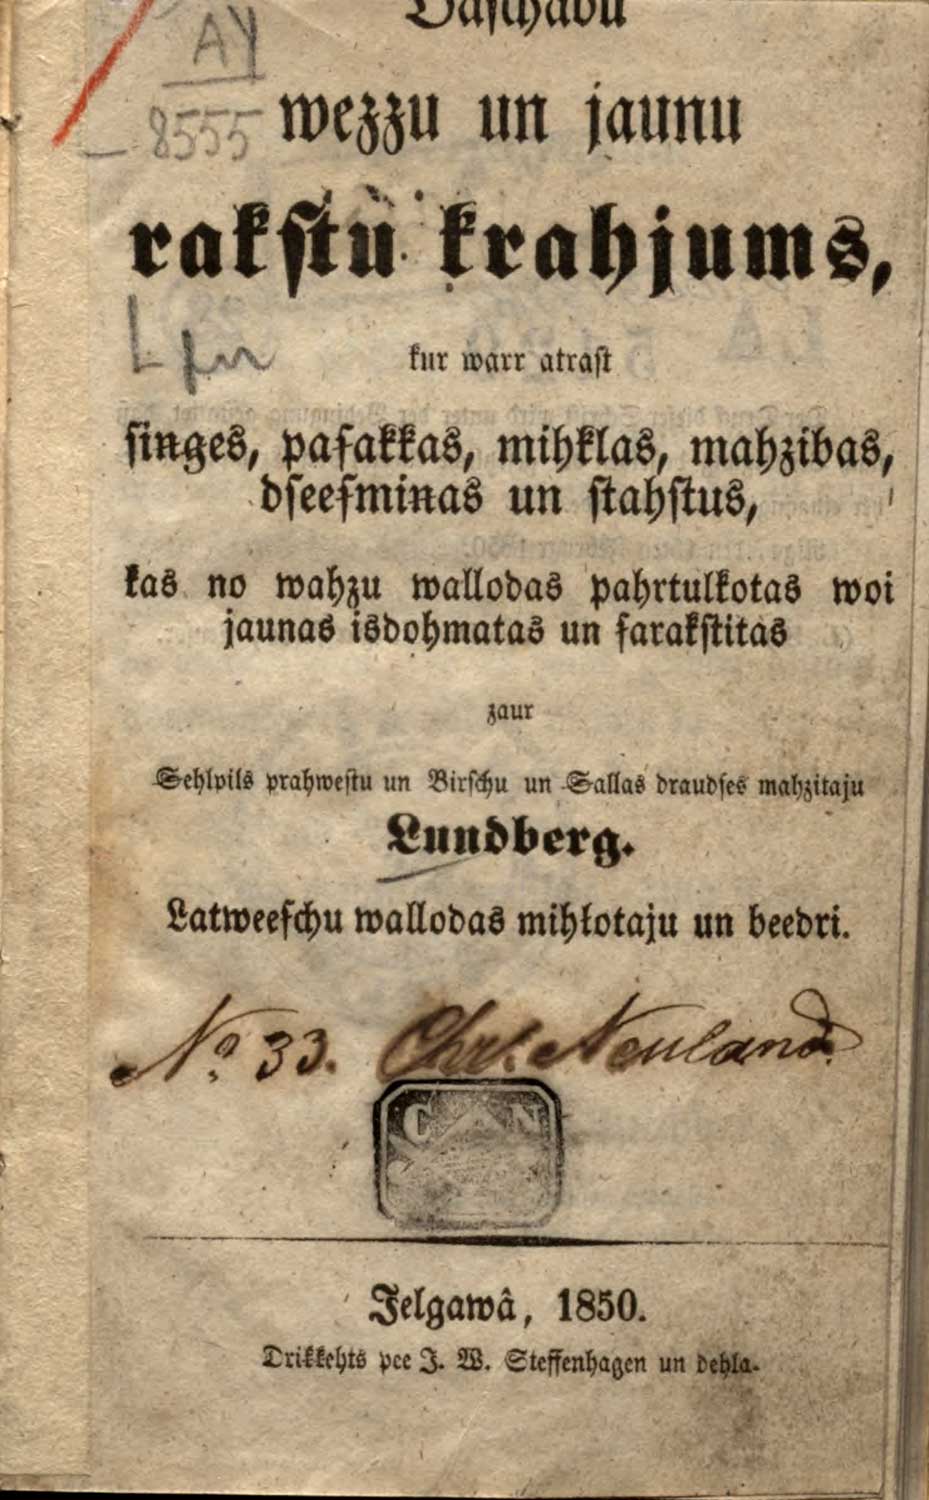 Daschadu
AY
8555
wezzu un jaunu
rakstu krahjums,
kur warr atrast
singes, pasakkas, mihklas, mahzibas,
dseesminas un stahstus,
kas no wahzu wallodas pahrtulkotas woi
jaunas isdohmatas un sarakstitas
zaur
Sehlpils prahwestu un Birschu un Sallas draudses mahzitaju
Lundberg.
Latweeschu wallodas mihłotaju un beedri.
No 33. Chr. Neuland.
C N
Jelgawâ, 1850.
Drikkehts pee J. W. Steffenhagen un dehla.